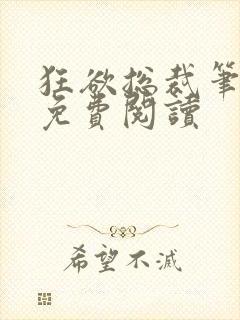 狂欲总裁笔
免費閱讀
希望不滅